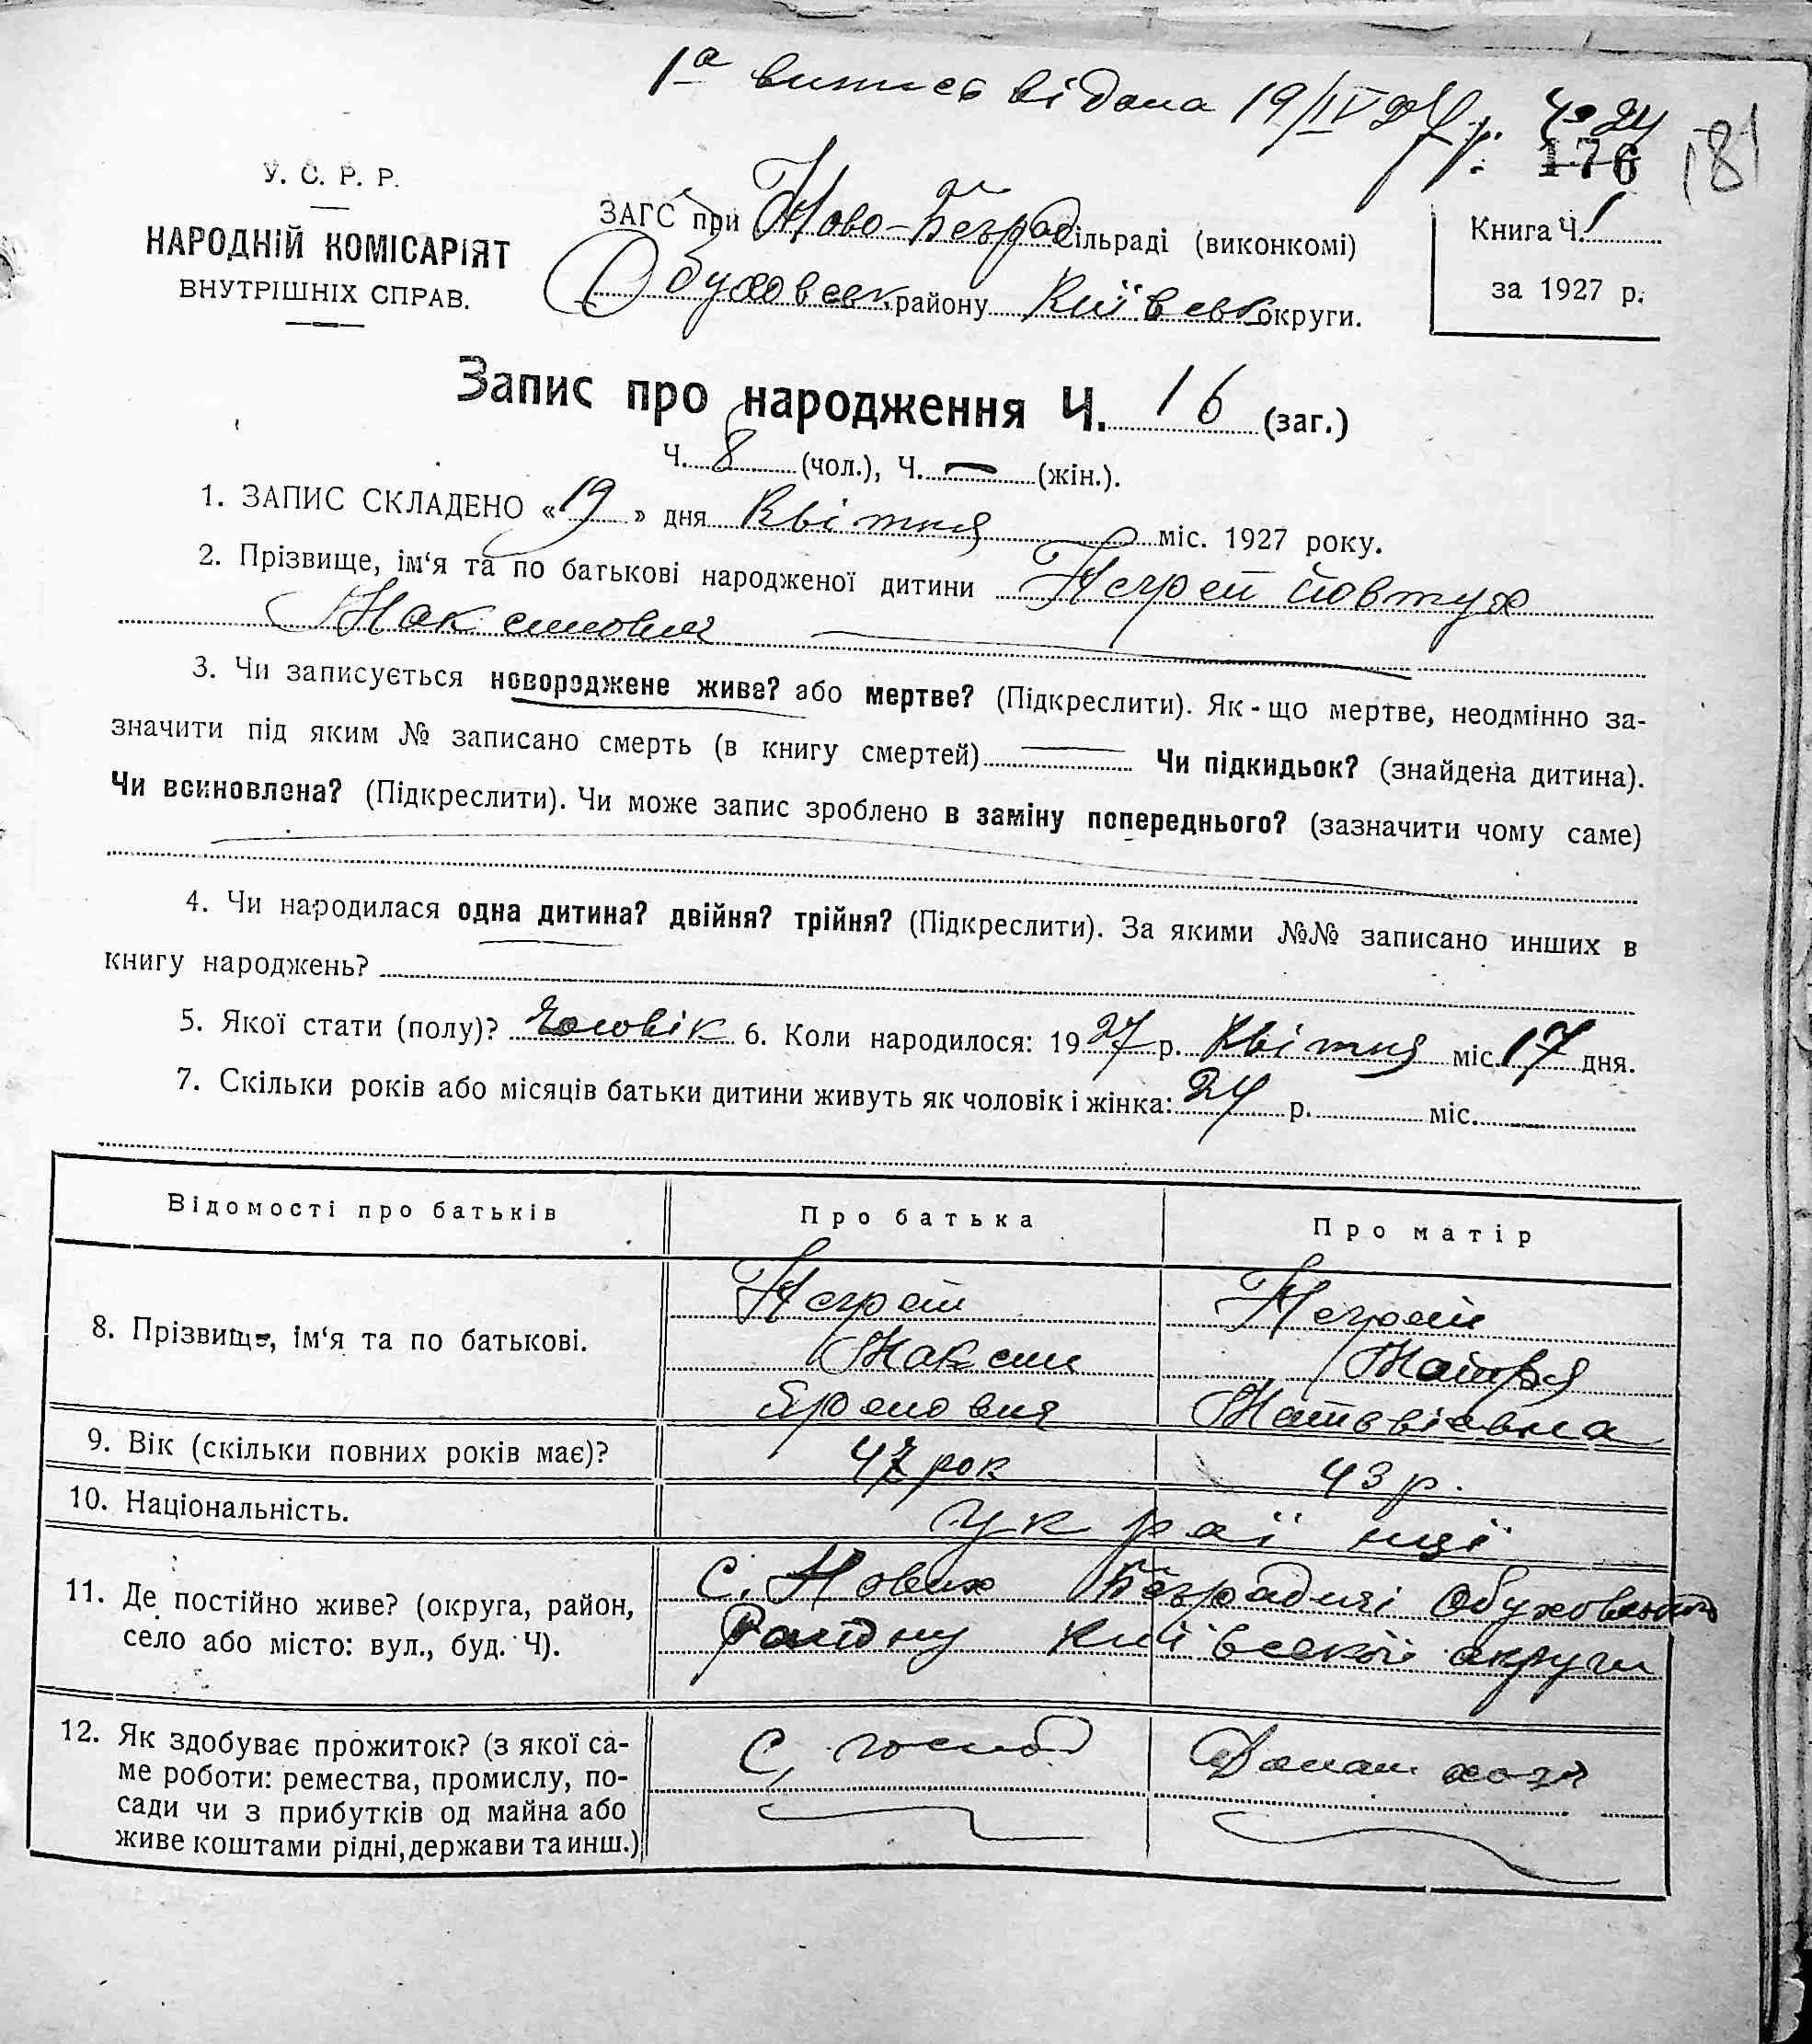 1а випись відана 19/IV 27 р. Ч° 24
176 181
У. С. Р. Р.
НАРОДНІЙ КОМІСАРІЯТ
ВНУТРІШНІХ СПРАВ.
ЗАГС при Ново-Безрад сільраді (виконкомі)
Обуховськ. району Київськ округи.
Книга Ч. 1
за 1927 р.
Запис про народження Ч. 16 (заг.)
Ч. 8 (чол.), Ч. — (жін.).
1. ЗАПИС СКЛАДЕНО «19» дня Квітня міс. 1927 року.
2. Прізвище, ім‘я та по батькові народженої дитини Негрей Йовтух
Максимович
3. Чи записується новороджене живе? або мертве? (Підкреслити). Як-що мертве, неодмінно за-
значити під яким № записано смерть (в книгу смертей) Чи підкидьок? (знайдена дитина).
Чи всиновлена? (Підкреслити). Чи може запис зроблено в заміну попереднього? (зазначити чому саме)
4. Чи народилася одна дитина? двійня? трійня? (Підкреслити). За якими №№ записано инших в
книгу народжень?
5. Якої стати (полу)? Чоловік 6. Коли народилося: 1927 р. Квітня міс. 17 дня.
7. Скільки років або місяців батьки дитини живуть як чоловік і жінка: 24 р. міс.
Відомості про батьків Про батька Про матір
8. Прізвище, ім‘я та по батькові.
Негрей Негрей
Максим Мотря
Яремович Матвієвна
9. Вік (скільки повних років має)? 47 рок 43 р.
10. Національність. Українці
11. Де постійно живе? (округа, район,
село або місто: вул., буд. Ч).
С. Нових Безрадичі Обуховського
Району Київської округи
12. Як здобуває прожиток? (з якої са-
ме роботи: ремества, промислу, по-
сади чи з прибутків од майна або
живе коштами рідні, держави та инш.)
С, господ Домаш хозя